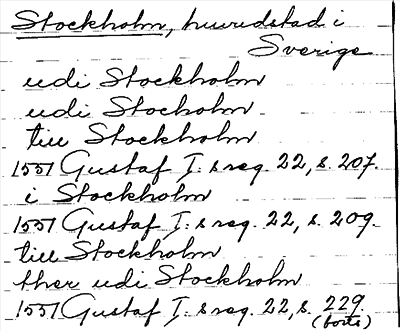 Stockholm, huvudstad i
Sverige
udi Stockholm
udi Stocholm
till Stockholm
1551 Gustaf I:s reg. 22, s. 207.
i Stockholm
1551 Gustaf I:s reg. 22, s. 209.
till Stockholm
ther udi Stockholm
1551 Gustaf I:s reg. 22, s. 229
(borte)